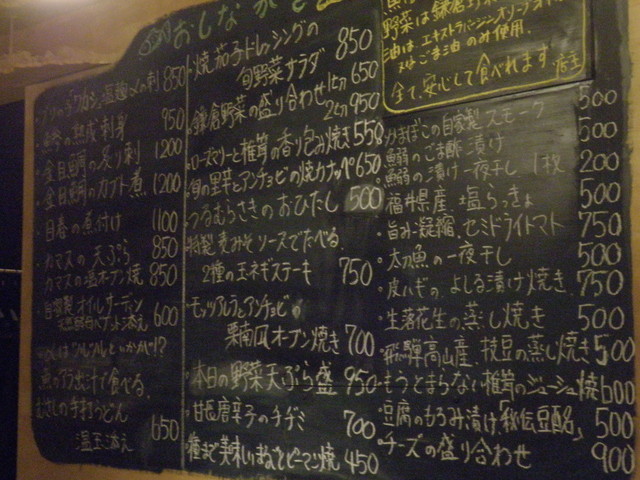 おしながき
850
950
金目鯛の炙り刺 1200
金目鯛のカブト煮 1200
煮付け 1100
カマスの天ぷら 850
カマスの塩オーブン焼 850
自家製オイルサーディン
添え 600
魚のアラ出汁で食べる
手打うどん
温玉添え 650
焼茄子ドレッシングの
旬野菜サラダ 850
鎌倉野菜の盛り合わせ 1人 650
2人 950
ローズマリーと椎茸の香り包み焼き 550
旬の野菜とアンチョビの焼カナッペ 650
つるむらさきのおひたし 500
特製麦みそソースでたべる
2種の玉ネギステーキ 750
モッツァレラとアンチョビの
栗南瓜オーブン焼き 700
本日の野菜天ぷら盛 950
甘長唐辛子のチヂミ 700
種まで美味しいまるごとピーマン焼 450
野菜は鎌倉野
油は、エキストラバージンオリーブオイル
ごま油のみ使用。
全て、安心して食べれます 店主
かまぼこの自家製スモーク 500
鰯のごま酢漬け 500
魚醤の漬け一夜干し 1枚 200
福井県産 塩らっきょ 500
旨み凝縮、セミドライトマト 750
太刀魚の一夜干し 500
皮ハギの、よしる漬け焼き 750
生落花生の蒸し焼き 500
飛騨高山産、枝豆の蒸し焼き 500
もうとまらない椎茸のジューシュ焼 600
豆腐のもろみ漬け「秘伝豆酩」 500
チーズの盛り合わせ 900